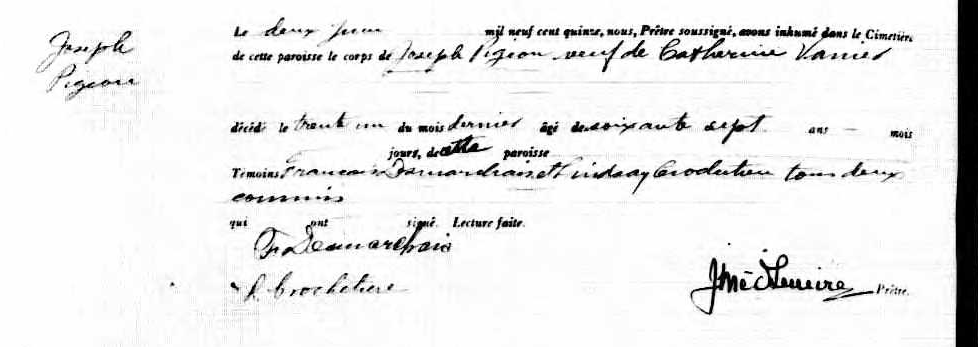 Joseph
Pigeon
Le deux juin mil neuf cent quinze, nous, Prêtre soussigné, avons inhumé dans le Cimetière
de cette paroisse le corps de Joseph Pigeon veuf de Catherine Vanier
décédé le trente un du mois dernier âgé de soixante sept ans — mois
jours, de cette paroisse
Témoins François Desmarchais et Lindsay Crochetiere tous deux
commis
qui ont signé. Lecture faite.
F Desmarchais
L Crochetiere
Prêtre.